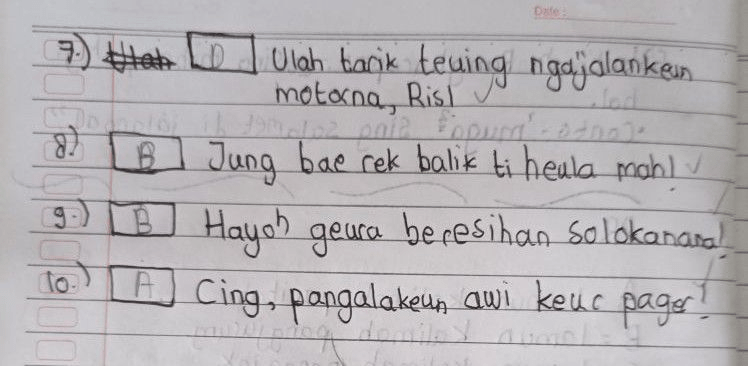 Date:
7.) Utah D Ulah tarik teuing ngajalankeun
motorna, Ris!
8.) B Jung bae rek balik ti heula mah!
9.) B Hayoh geura beresihan solokanana!
10.) A Cing, pangalakeun awi keur pager!